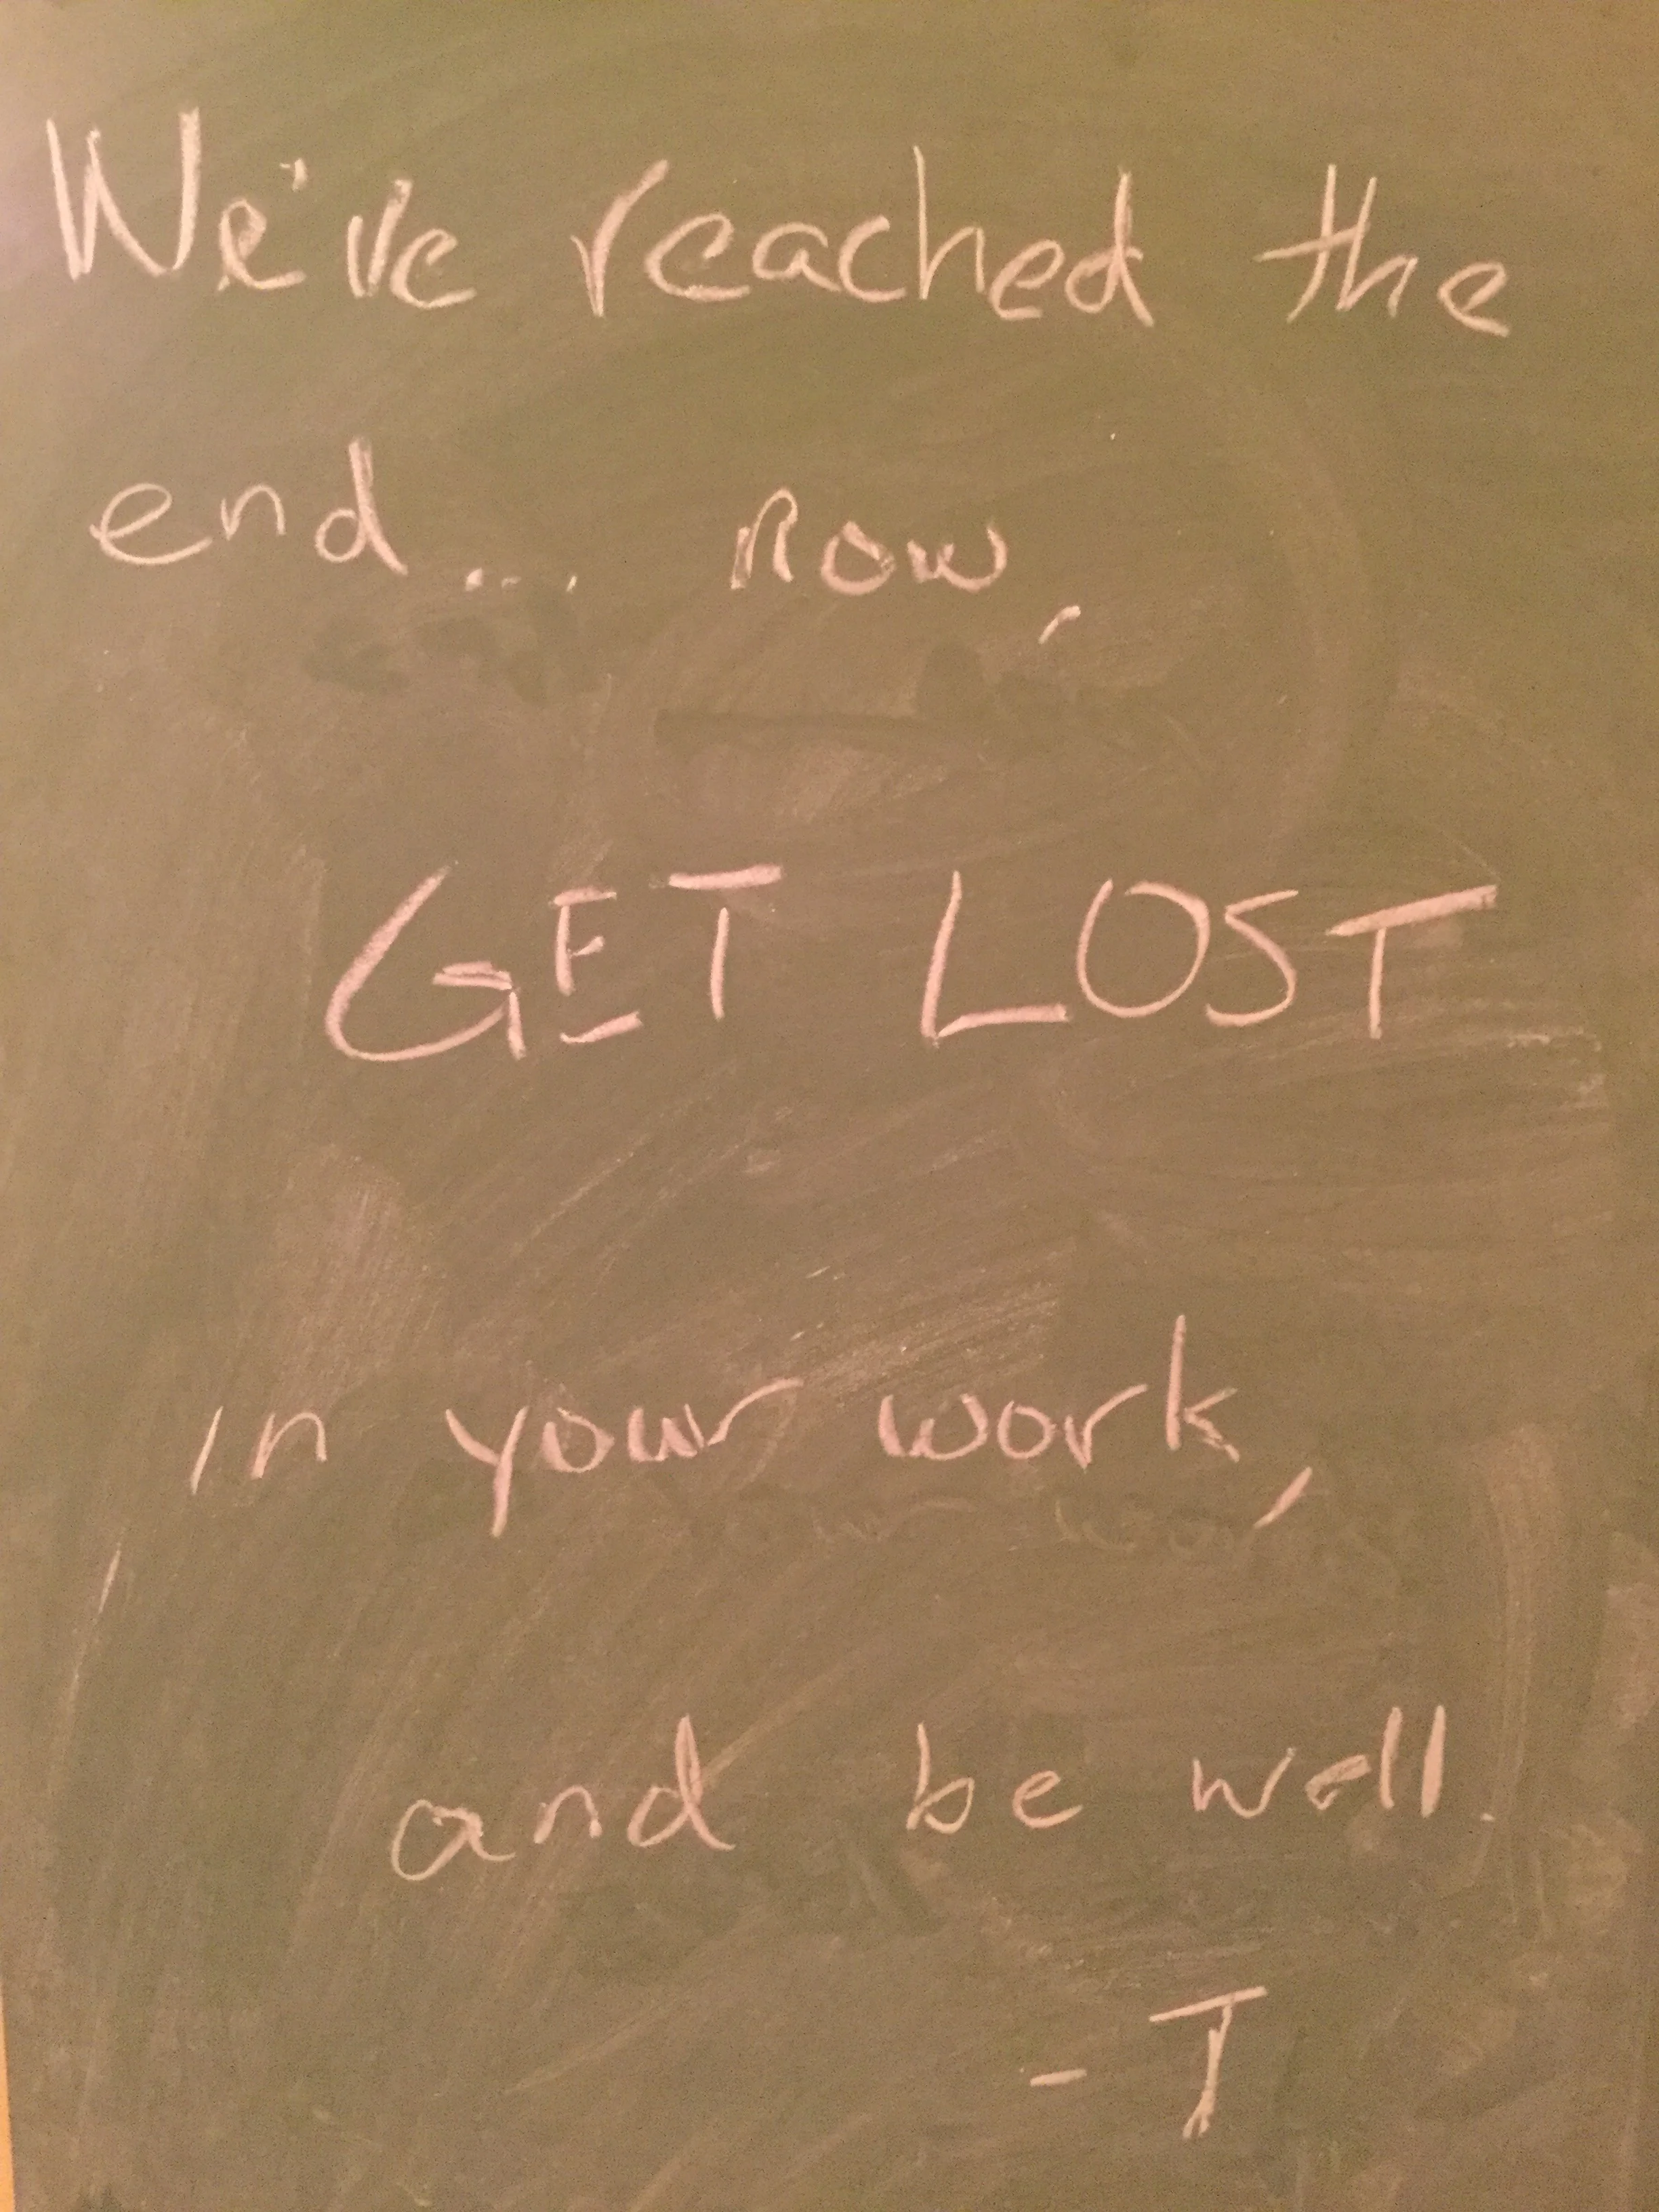 We've reached the
end... now,
GET LOST
in your work,
and be well.
- T